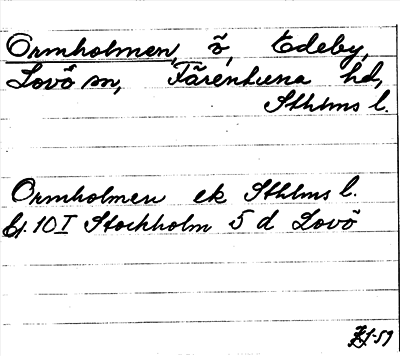 Ormholmen, ö, Edeby,
Lovö sn, Färentuna hd,
Sthlms l.
Ormholmen ek Sthlms l.
bl. 10 I Stockholm 5 d Lovö